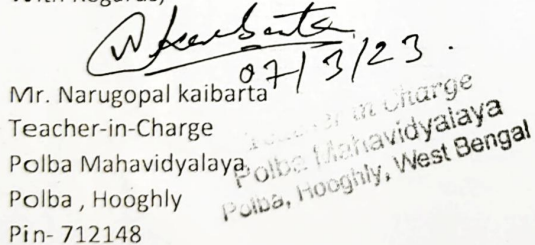 With Regards,
07/3/23.
Mr. Narugopal kaibarta
Teacher-in-Charge
Polba Mahavidyalaya
Polba , Hooghly
Pin- 712148
Teacher in Charge
Polba Mahavidyalaya
Polba, Hooghly, West Bengal